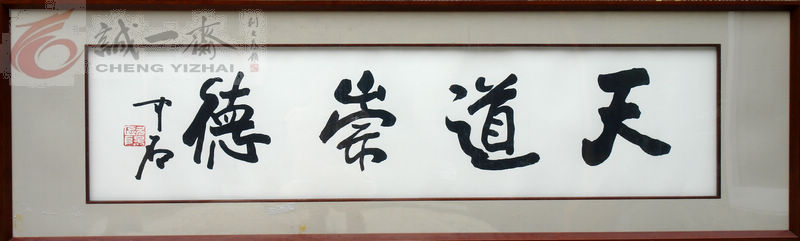 誠一齋
CHENG YIZHAI
天道崇德
中石